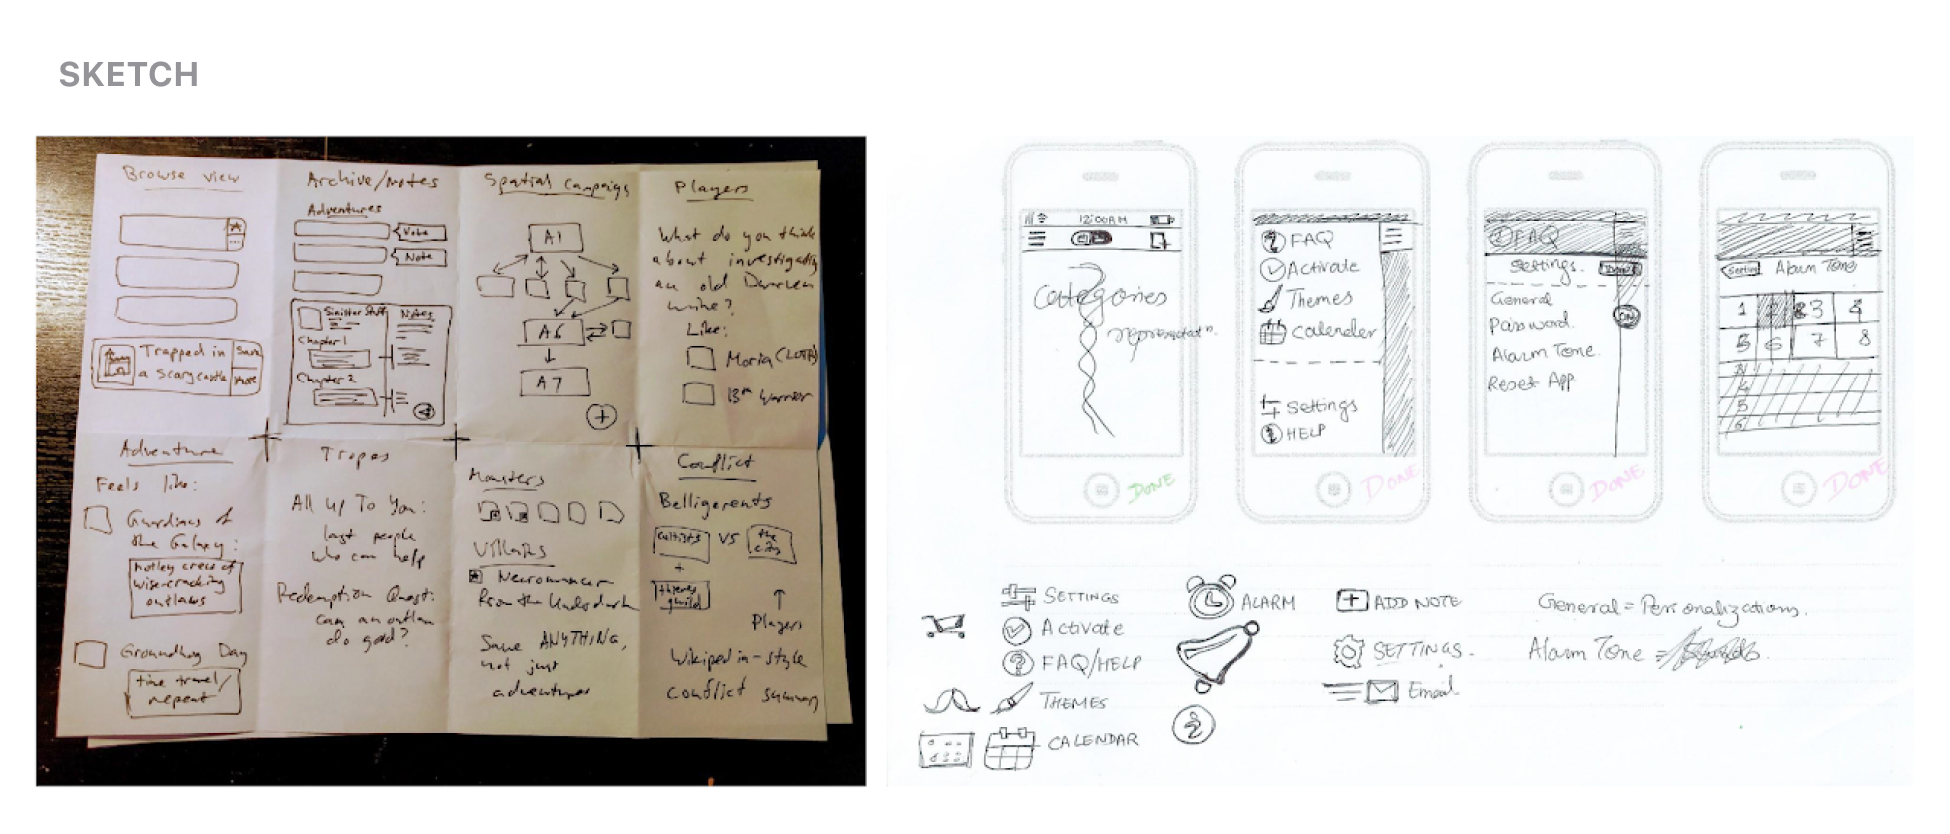 SKETCH
Browse view
Trapped in
a scary castle
Save
more
Archive/Notes
Adventures
Note
Sinister Stuff
Notes
Chapter 1
Chapter 2
Spatial Campaign
A1
A6
A7
+
Players
What do you think
about investigating
an old Dwarven
mine?
Like:
Moria (LOTR)
13th Warrior
Adventure
Feels like:
Guardians of
the Galaxy:
motley crews of
wise-cracking
outlaws
Groundhog Day
time travel/
repeat
Tropes
All Up To You:
last people
who can help
Redemption Quest:
can an outlaw
do good?
Monsters
Villains
Necromancer
from the Underdark
Save ANYTHING,
not just
adventures
Conflict
Belligerents
cultists
VS
the
city
+
thieves
guild
Players
Wikipedia-style
conflict summary
12:00AM
Categories
DONE
FAQ
Activate
Themes
Calender
Settings
HELP
DONE
FAQ
Settings.
DONE
General
ON
Password.
Alarm Tone.
Reset App
DONE
Alarm Tone
1 2 3 4
5 6 7 8
DONE
SETTINGS
Activate
FAQ/HELP
THEMES
CALENDAR
ALARM
ADD NOTE
SETTINGS.
Email
General = Personalizations.
Alarm Tone =